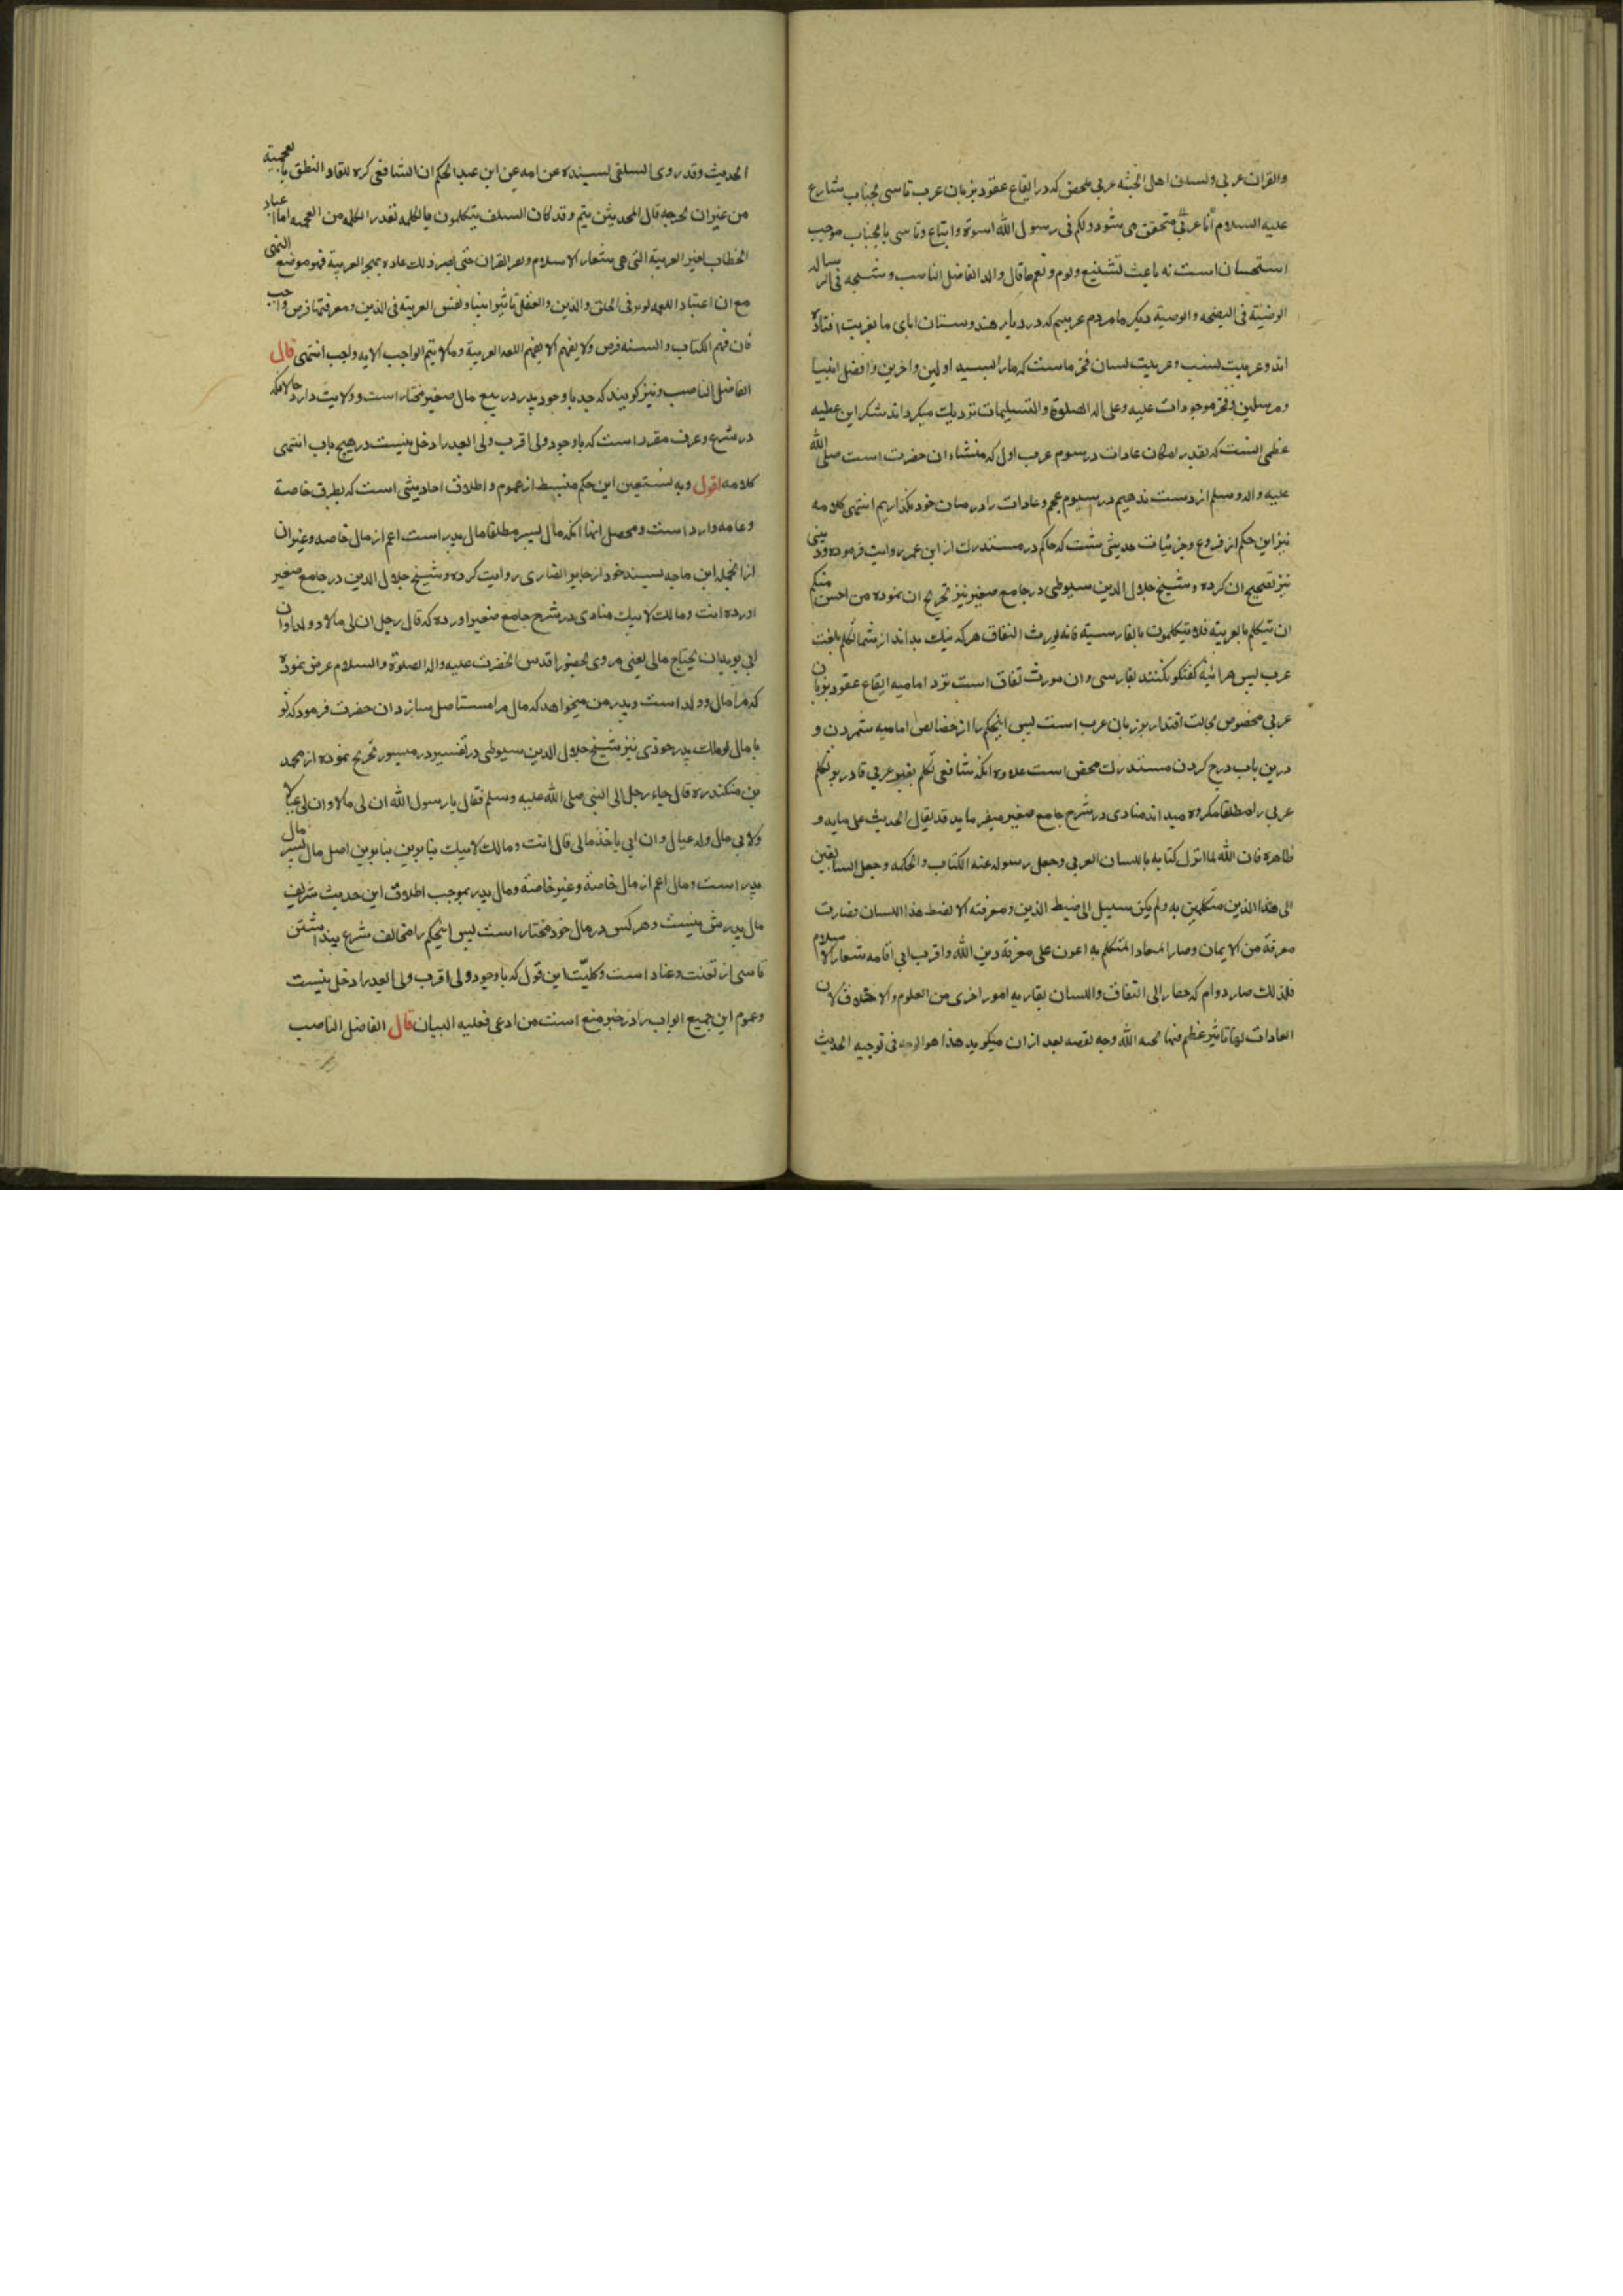 والقران عربی ولسان اهل الجنه عربی محض که در ایقاع عقود بزبان عرب تاسی بجناب شارع
علیه السلام انا عربی متحقق می شود ولکم فی رسول الله اسوة واتباع وتاسی بانجناب موجب
استحسان است نه باعث تشنیع ولوم ونعم ما قال والد الفاضل الناصب وشیخه فی الرساله
الوضیئة فی النصیحه والوصیة دیگر ما مردم عربیم که در دیار هندوستان ابای ما بغربت افتاده
اند وعربیت نسب وعربیت لسان فخر ماست که ما را بسید اولین واخرین وافضل انبیا
ومرسلین وفخر موجودات علیه وعلی اله الصلوة والتسلیمات نزدیک میگرداند شکر این عطیه
عظمی انست که بقدر امکان عادات و رسوم عرب اول که منشاء ان حضرت است صلی الله
علیه واله وسلم از دست ندهیم و رسوم عجم وعادات را در میان خود نگذاریم انتهی کلامه
نیز این حکم از فروع وجزئیات حدیثی ست که حاکم در مستدرک از ابن عمر روایت فرموده وذهبی
نیز تصحیح ان کرده وشیخ جلال الدین سیوطی در جامع صغیر نیز تخریج ان نموده من احسن منکم
ان یتکلم بالعربیة فلا یتکلمون بالفارسیة فانه یورث النفاق هر که نیک بداند از شما تکلم بلغت
عرب پس هرائینه گفتگو نکنند بفارسی وان مورث نفاق است نزد امامیه ایقاع عقود بزبان
عربی مخصوص بحالت اقتدار بر زبان عرب است پس اینحکم را از خصائص امامیه شمردن و
درین باب درج کردن مستدرک محض است علاوه انکه شافعی تکلم بغیر عربی قادر بر تکلم
عربی را مطلقا مکروه میداند مناوی در شرح جامع صغیر میفرماید قد یقال الحدیث علی مایه و
ظاهره فان الله لما انزل کتابه باللسان العربی وجعل رسوله عنه الکتاب والحکمه وجعل السابقین
الی هذا الدین متکلمین به ولم یکن سبیل الی ضبط الدین ومعرفته الا بضبط هذا اللسان فصارت
معرفة من الایمان وصار المعاد المتکلم به اعون علی معرفة دین الله واقرب الی اقامه شعار الاسلام
فلذلک صار دوام که حضار الی النفاق واللسان بقاربه امور اخری من العلوم والاخلاق لان
العادات لها تاثیر عظم فیما یحبه الله وجه نقصه بعد ازان میگوید هذا هو الوجه فی توجیه الحدیث
الحدیث وقد روی السلفی بسنده عن امه عن ابن عبد الحکم ان الشافعی کره للقادر النطق بالعجمیة
من غیر ان یحرمه قال المحدثین یتم وقد کان السلف یتکلمون بالکلمه بقدر الکلمه من العجمیه اما اعتیاد
الخطاب بغیر العربیة التی هی شعار الاسلام ولغه القران حتی یصیر ذلک عادة بهجر العربیة فهو موضع النهی
مع ان اعتیاد اللغه یوثر فی الخلق والدین والعقل تاثیرا بینا ونفس العربیة فی الدین ومعرفتها فرض واجب
فان فهم الکتاب والسنه فرض ولا یفهم الا بفهم اللغه العربیة وما لا یتم الواجب الا به واجب انتهی قال
الفاضل الناصب ونیز گویند که جد با وجود پدر در بیع مال صغیر مختار است وولایت دارد حالانکه
در شرع وعرف مقرر است که با وجود ولی اقرب ولی ابعد را دخل نیست در هیچ باب انتهی
کلامه اقول وبه نستعین این حکم منبسط از عموم واطلاق احادیثی است که بطرق خاصة
وعامه وارد است ومحصل انها انکه مال پسر مطلقا مال پدر است اعم از مال خاصه وغیر ان
ازانجمله ابن ماجه بسند خود از جابر انصاری روایت کرده وشیخ جلال الدین در جامع صغیر
اورده انت ومالک لابیک مناوی در شرح جامع صغیر اورده که قال رجل ان لی مالا وولدا وان
ابی یرید ان یجتاح مالی یعنی مروی بحضور اقدس انحضرت علیه واله الصلوة والسلام عرض نموده
که مرا مال وولد است وپدر من میخواهد که مال مرا مستاصل سازد ان حضرت فرمود که تو
با مال از ملک پدر خودی نیز شیخ جلال الدین سیوطی در تفسیر در منثور تخریج نموده از محمد
بن منکدر قال جاء رجل الی النبی صلی الله علیه وسلم فقال یا رسول الله ان لی مالا وان لی عیالا
ولابی مال وله عیال وان ابی یاخذ مالی قال انت ومالک لابیک بنابرین بنابرین اصل مال پسر مال
پدر است ومال اعم از مال خاصة وغیر خاصة ومال پدر بموجب اطلاق این حدیث شریف
مال پدرش نیست وهر کس در مال خود مختار است پس اینحکم را مخالف شرع پنداشتن
ناسی از تعنت وعناد است وکلیت این قول که با وجود ولی اقرب ولی ابعد را دخل نیست
وعموم این جمیع ابواب را در خبر منع است من ادعی فعلیه البیان قال الفاضل الناصب